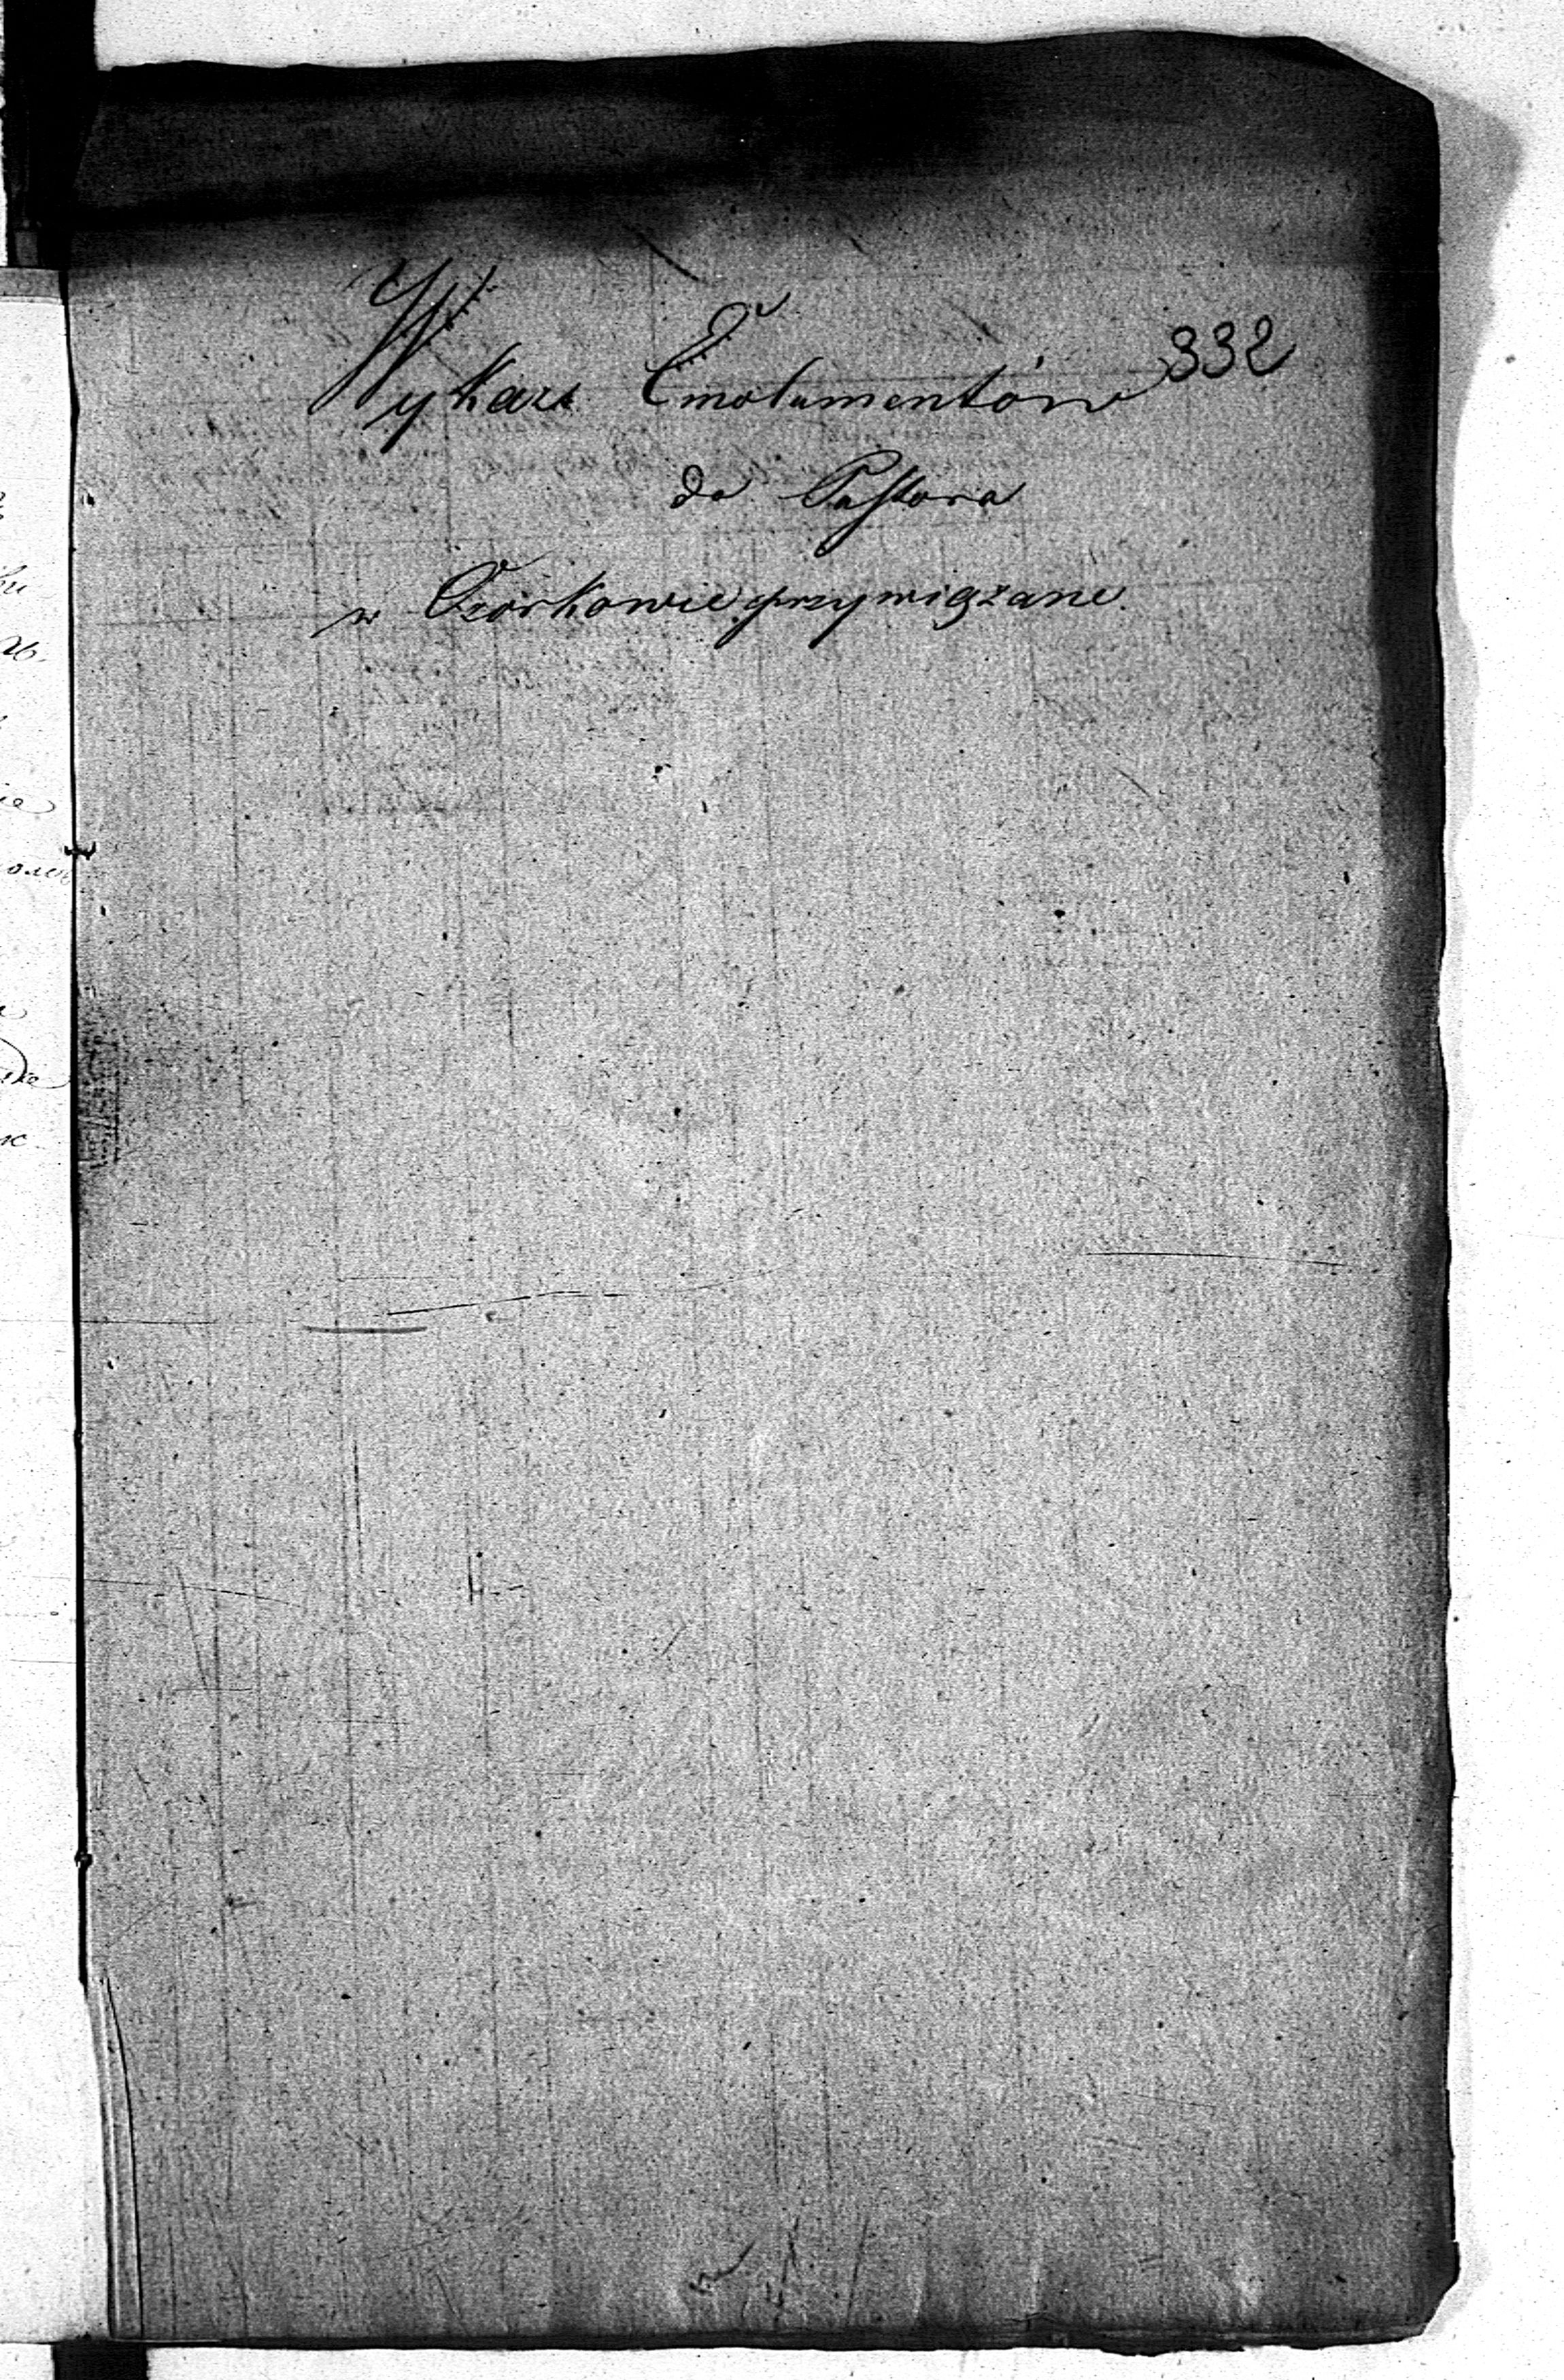 332
Wykaz Emolumentów
do Pastora
w Ozorkowie przywiązane.